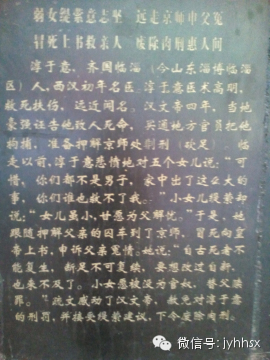 弱女缇萦意志坚 远走京师申父冤
冒死上书救亲人 废除肉刑惠人间
淳于意,齐国临淄(今山东淄博临淄
区)人,西汉初年名医。淳于意医术高明,
救死扶伤,远近闻名。汉文帝四年,当地
豪强诬告他致人死命,买通地方官员把他
拘捕,准备押解京师处剕刑(砍足)。临
走以前,淳于意悲愤地对五个女儿说:“可
惜,你们都不是男子,家中出了这么大的
事,你们谁也救不了我。”小女儿缇萦却
说:“女儿虽小,甘愿为父解忧。”于是,她
跟随押解父亲的囚车到了京师,冒死向皇
帝上书,申诉父亲冤情。她说:“自古死者不
能复生,断足不可复续,要想改过自新,
也来不及了。小女愿被没为官奴,替父赎
罪。”疏文感动了汉文帝,赦免对淳于意
的刑罚,并接受缇萦建议,下令废除肉刑。
微信号:jyhhsx